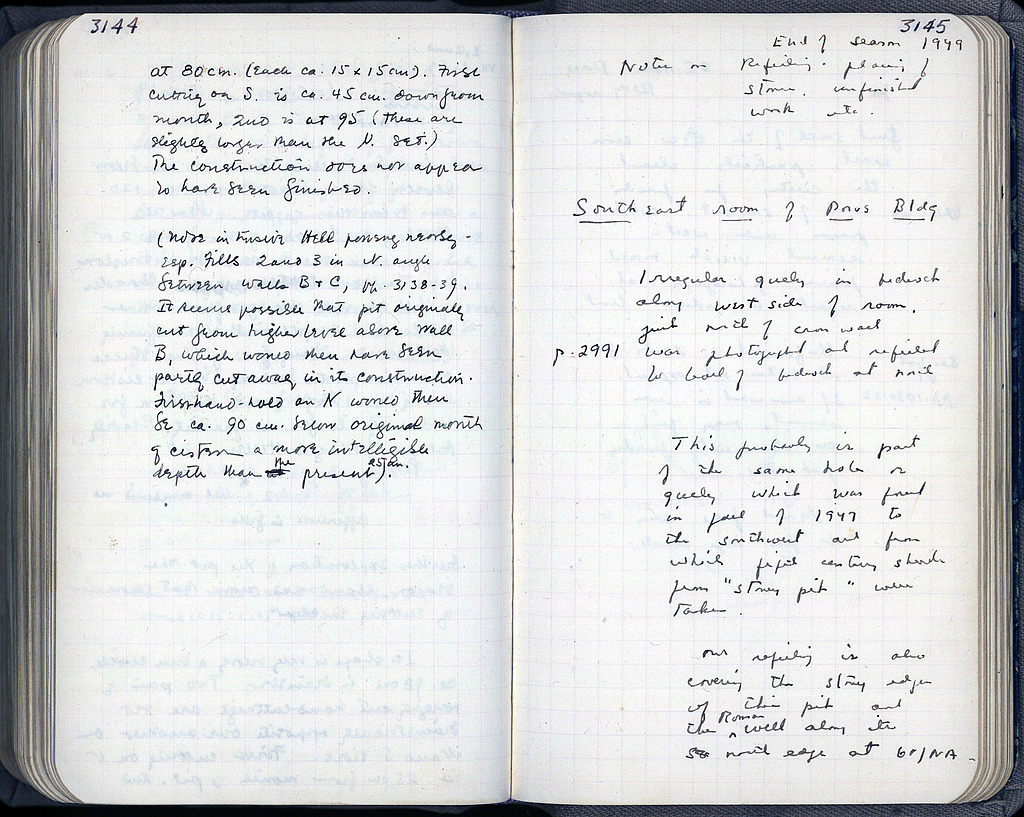 3144
at 80cm. (Each ca. 15 x 15cm). First
cutting on S. is ca. 45 cm. down from
mouth, 2nd is at 95 (these are
slightly larger than the N. set.)
The construction does not appear
to have been finished.
(Note intrusive Hell. poking nearby -
esp. Fills 2 and 3 in N. angle
between walls B + C, pp. 3138-39.
It seems possible that pit originally
cut from higher level above wall
B, which would then have been
partly cut away in its construction.
First hand-hold on N would then
be ca. 90 cm. below original mouth
of cistern a more intelligible
depth than the present 25 cm.).
3145
End of season 1949
Notes on Refilling - placing of
stone, unfinished
work etc.
Southeast room of Poros Bldg
Irregular gulley in bedrock
along west side of room,
just north of cross wall
p. 2991 was photographed and refilled
to level of bedrock at north
This probably is part
of the same hole or
gulley which was found
in fall of 1947 to
the southwest and from
which fifth century sherds
from "stoney pit" were
taken.
Our refilling is also
covering the stoney edges
of this pit and
the Roman well along its
north edge at 61/NA.